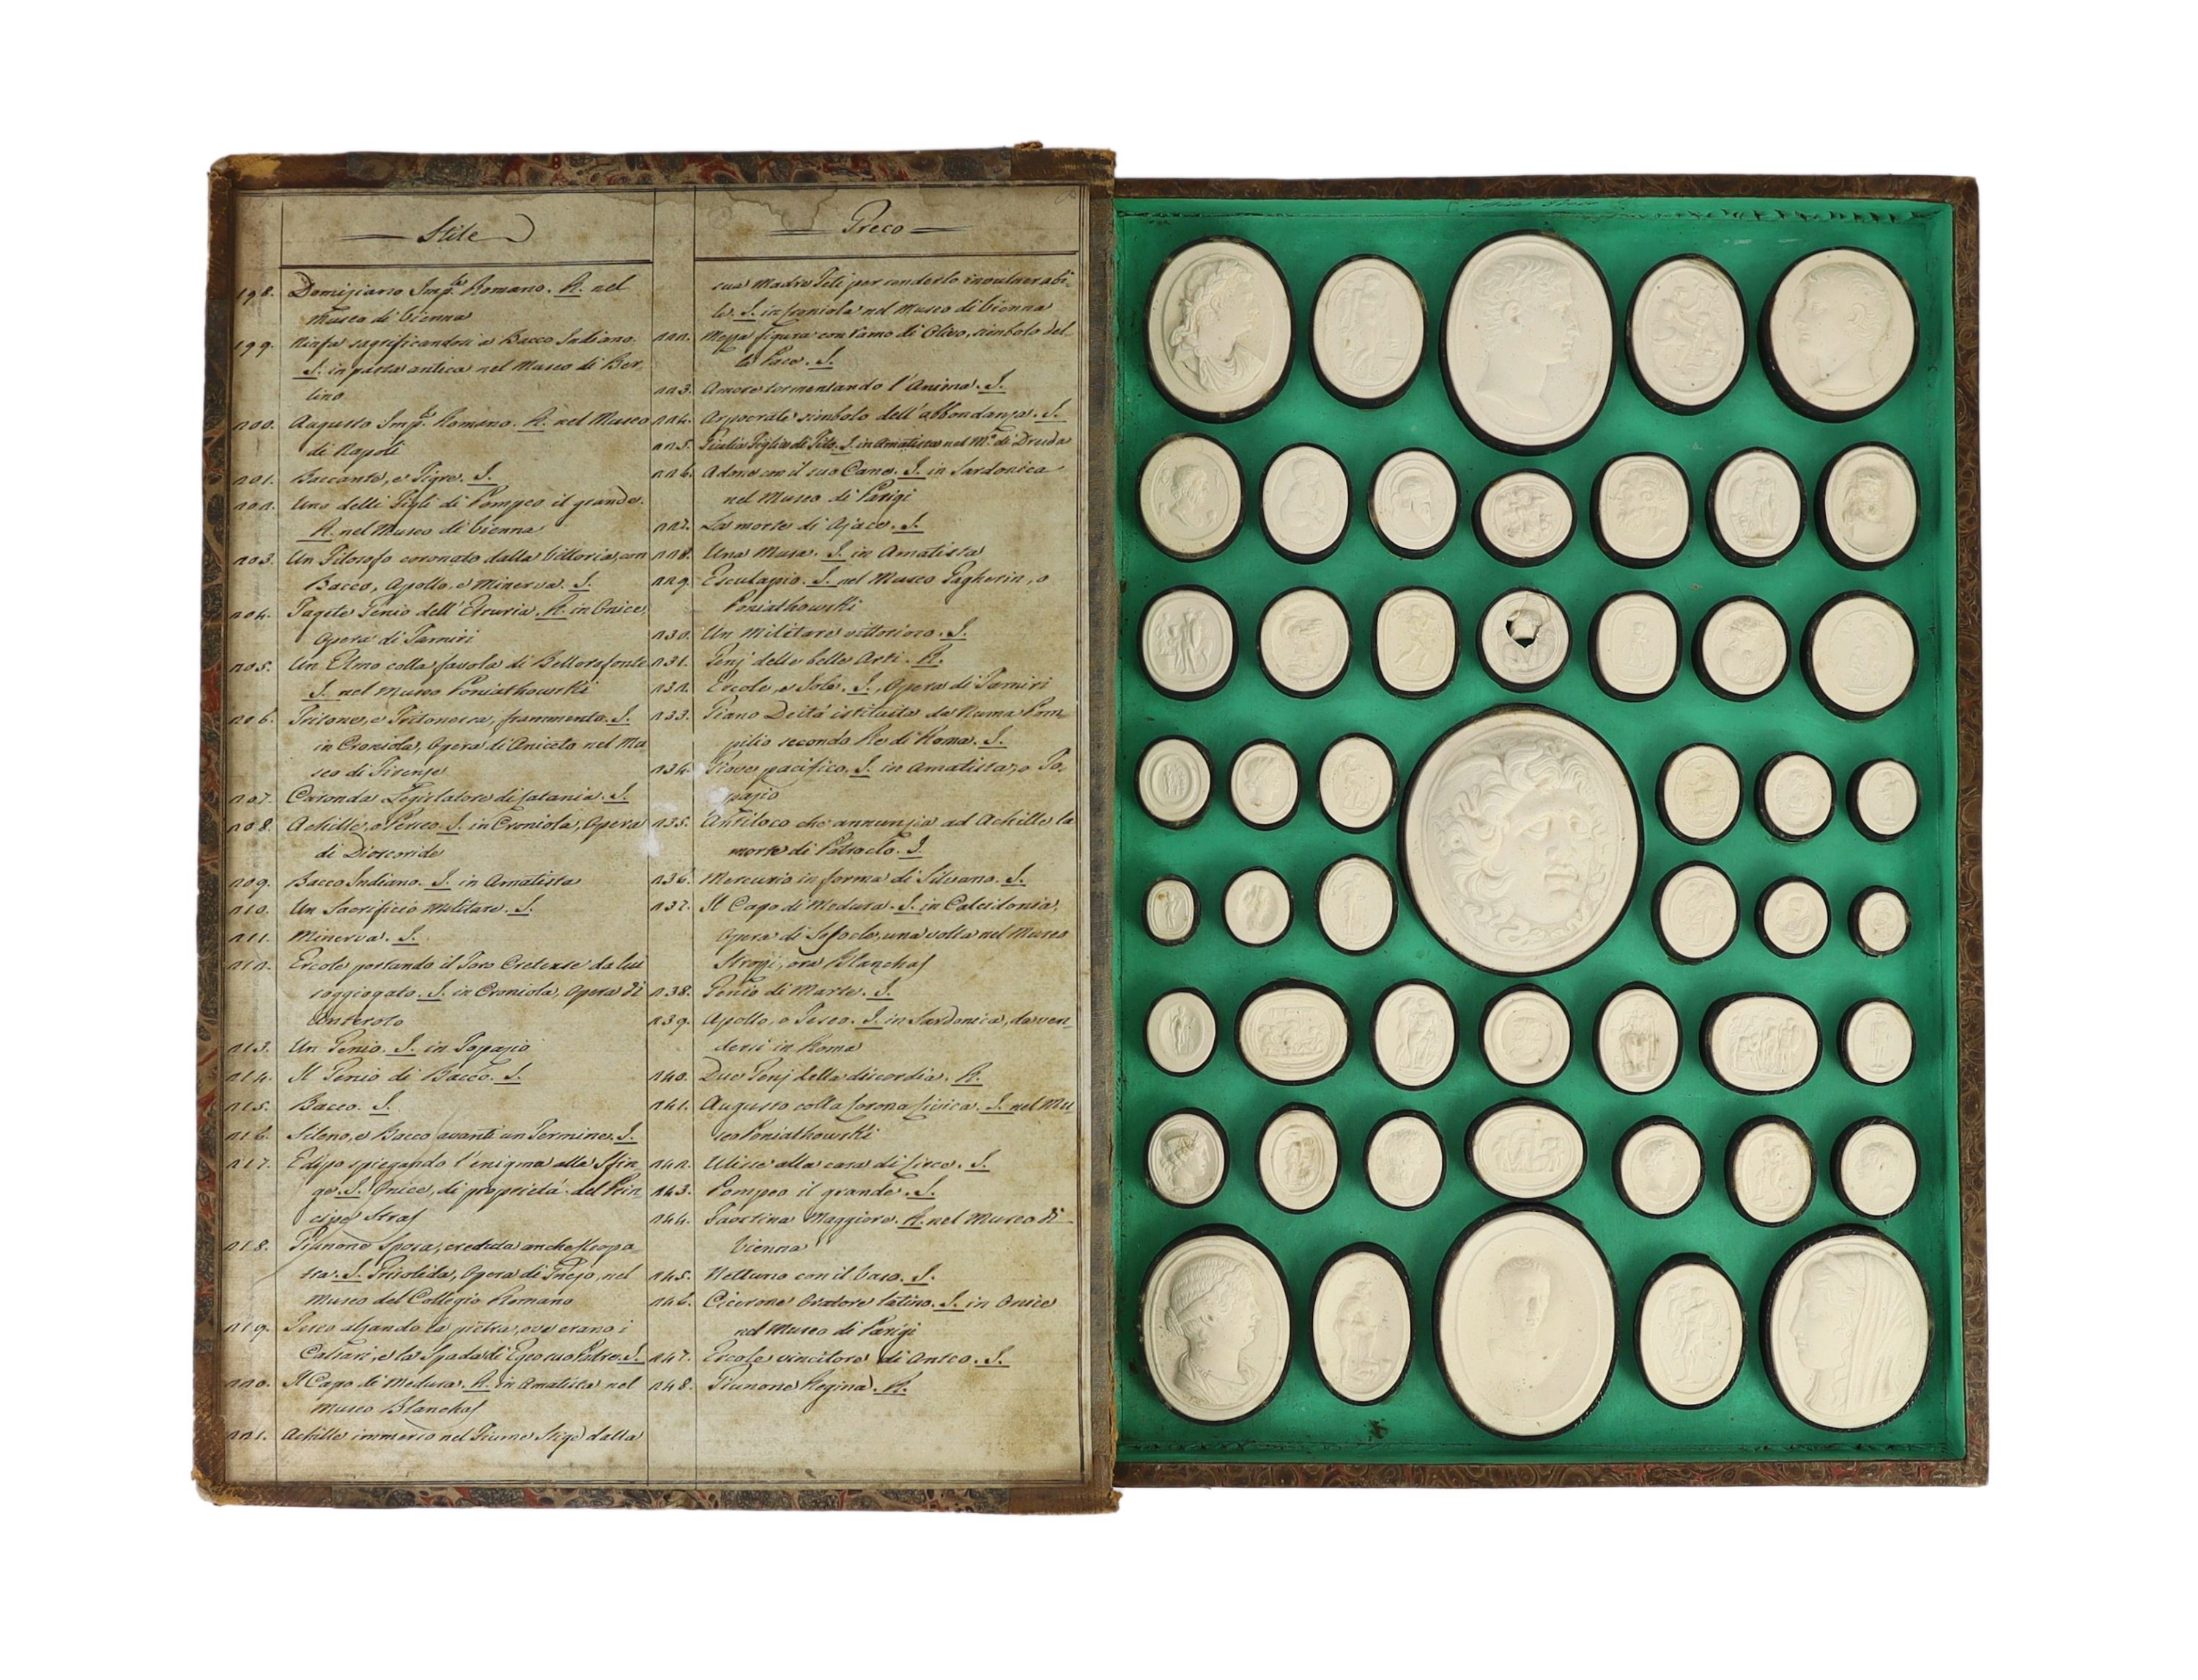 Stile
198. Domiziano Imp.re Romano. R. nel
Museo di Vienna
199. Ninfa sagrificandosi a Bacco Indiano.
S. in pasta antica nel Museo di Ber-
lino
200. Augusto Imp.re Romano. R. nel Museo
di Napoli
201. Baccante, e Tigre. S.
202. Uno delli Figli di Pompeo il grande.
R. nel Museo di Vienna
203. Un Filosofo coronato dalla Vittoria, con
Bacco, Apollo, e Minerva. S.
204. Tagete Genio dell'Etruria. R. in Onice,
Opera di Tamiri
205. Un Elmo colla favola di Bellorofonte
S. nel Museo Poniathowski
206. Tritone, e Tritonessa, frammento. S.
in Croniola, Opera di Aniceto nel Mu
seo di Firenze
207. Caronda Legislatore di Catania. S.
208. Achille, o Perseo. S. in Croniola, Opera
di Dioscoride
209. Bacco Indiano. S. in Amatista
210. Un Sacrificio Militare. S.
211. Minerva. S.
212. Ercole portando il Toro Cretense da lui
soggiogato. S. in Croniola, Opera di
Anteroto
213. Un Genio. S. in Topazio
214. Il Genio di Bacco. S.
215. Bacco. S.
216. Sileno, e Bacco avanti un Termine. S.
217. Edipo spiegando l'enigma alla Sfin-
ge. S. Onice, di proprietà del Prin-
cipe Straf
218. Giunone Sposa, creduta anche Cleopa-
tra. S. Grisolida, Opera di Grejo, nel
Museo del Collegio Romano
219. Teseo alzando la pietra, ove erano i
Calzari, e la Spada di Egeo suo Padre. S.
220. Il Capo di Medusa. R. in Amatista nel
Museo Blanchaf
221. Achille immerso nel Fiume Stige dalla
Greco
sua Madre Teti per renderlo invulnerabi-
le. S. in Croniola nel Museo di Vienna
222. Mezza figura con ramo di Olivo, simbolo del-
la Pace. S.
223. Amore tormentando l'Anima. S.
224. Arpocrate simbolo dell'abbondanza. S.
225. Giulia Figlia di Tito. S. in Amatista nel M.o di Dresda
226. Adone con il suo Cane. S. in Sardonica
nel Museo di Parigi
227. La morte di Ajace. S.
228. Una Musa. S. in Amatista
229. Esculapio. S. nel Museo Pagherin, o
Poniathowski
230. Un Militare vittorioso. S.
231. Genj delle belle Arti. R.
232. Ercole, e Iole. S. Opera di Tamiri
233. Giano Deità istituita da Numa Pom-
pilio secondo Re di Roma. S.
234. Giove pacifico. S. in Amatista, o To-
pazio
235. Antiloco che annunzia ad Achille la
morte di Patroclo. S.
236. Mercurio in forma di Silvano. S.
237. Il Capo di Medusa. S. in Calcidonia,
Opera di Sofocle, una volta nel Museo
Strozzi, ora Blanchaf
238. Genio di Marte. S.
239. Apollo, o Teseo. S. in Sardonica, da ven-
dersi in Roma
240. Due Genj della discordia. R.
241. Augusto colla Corona Civica. S. nel Mu
seo Poniathowski
242. Ulisse alla casa di Circe. S.
243. Pompeo il grande. S.
244. Faustina Maggiore. R. nel Museo di
Vienna
245. Nettuno con il Vaso. S.
246. Cicerone Oratore latino. S. in Onice
nel Museo di Parigi
247. Ercole vincitore di Anteo. S.
248. Giunone Regina. R.